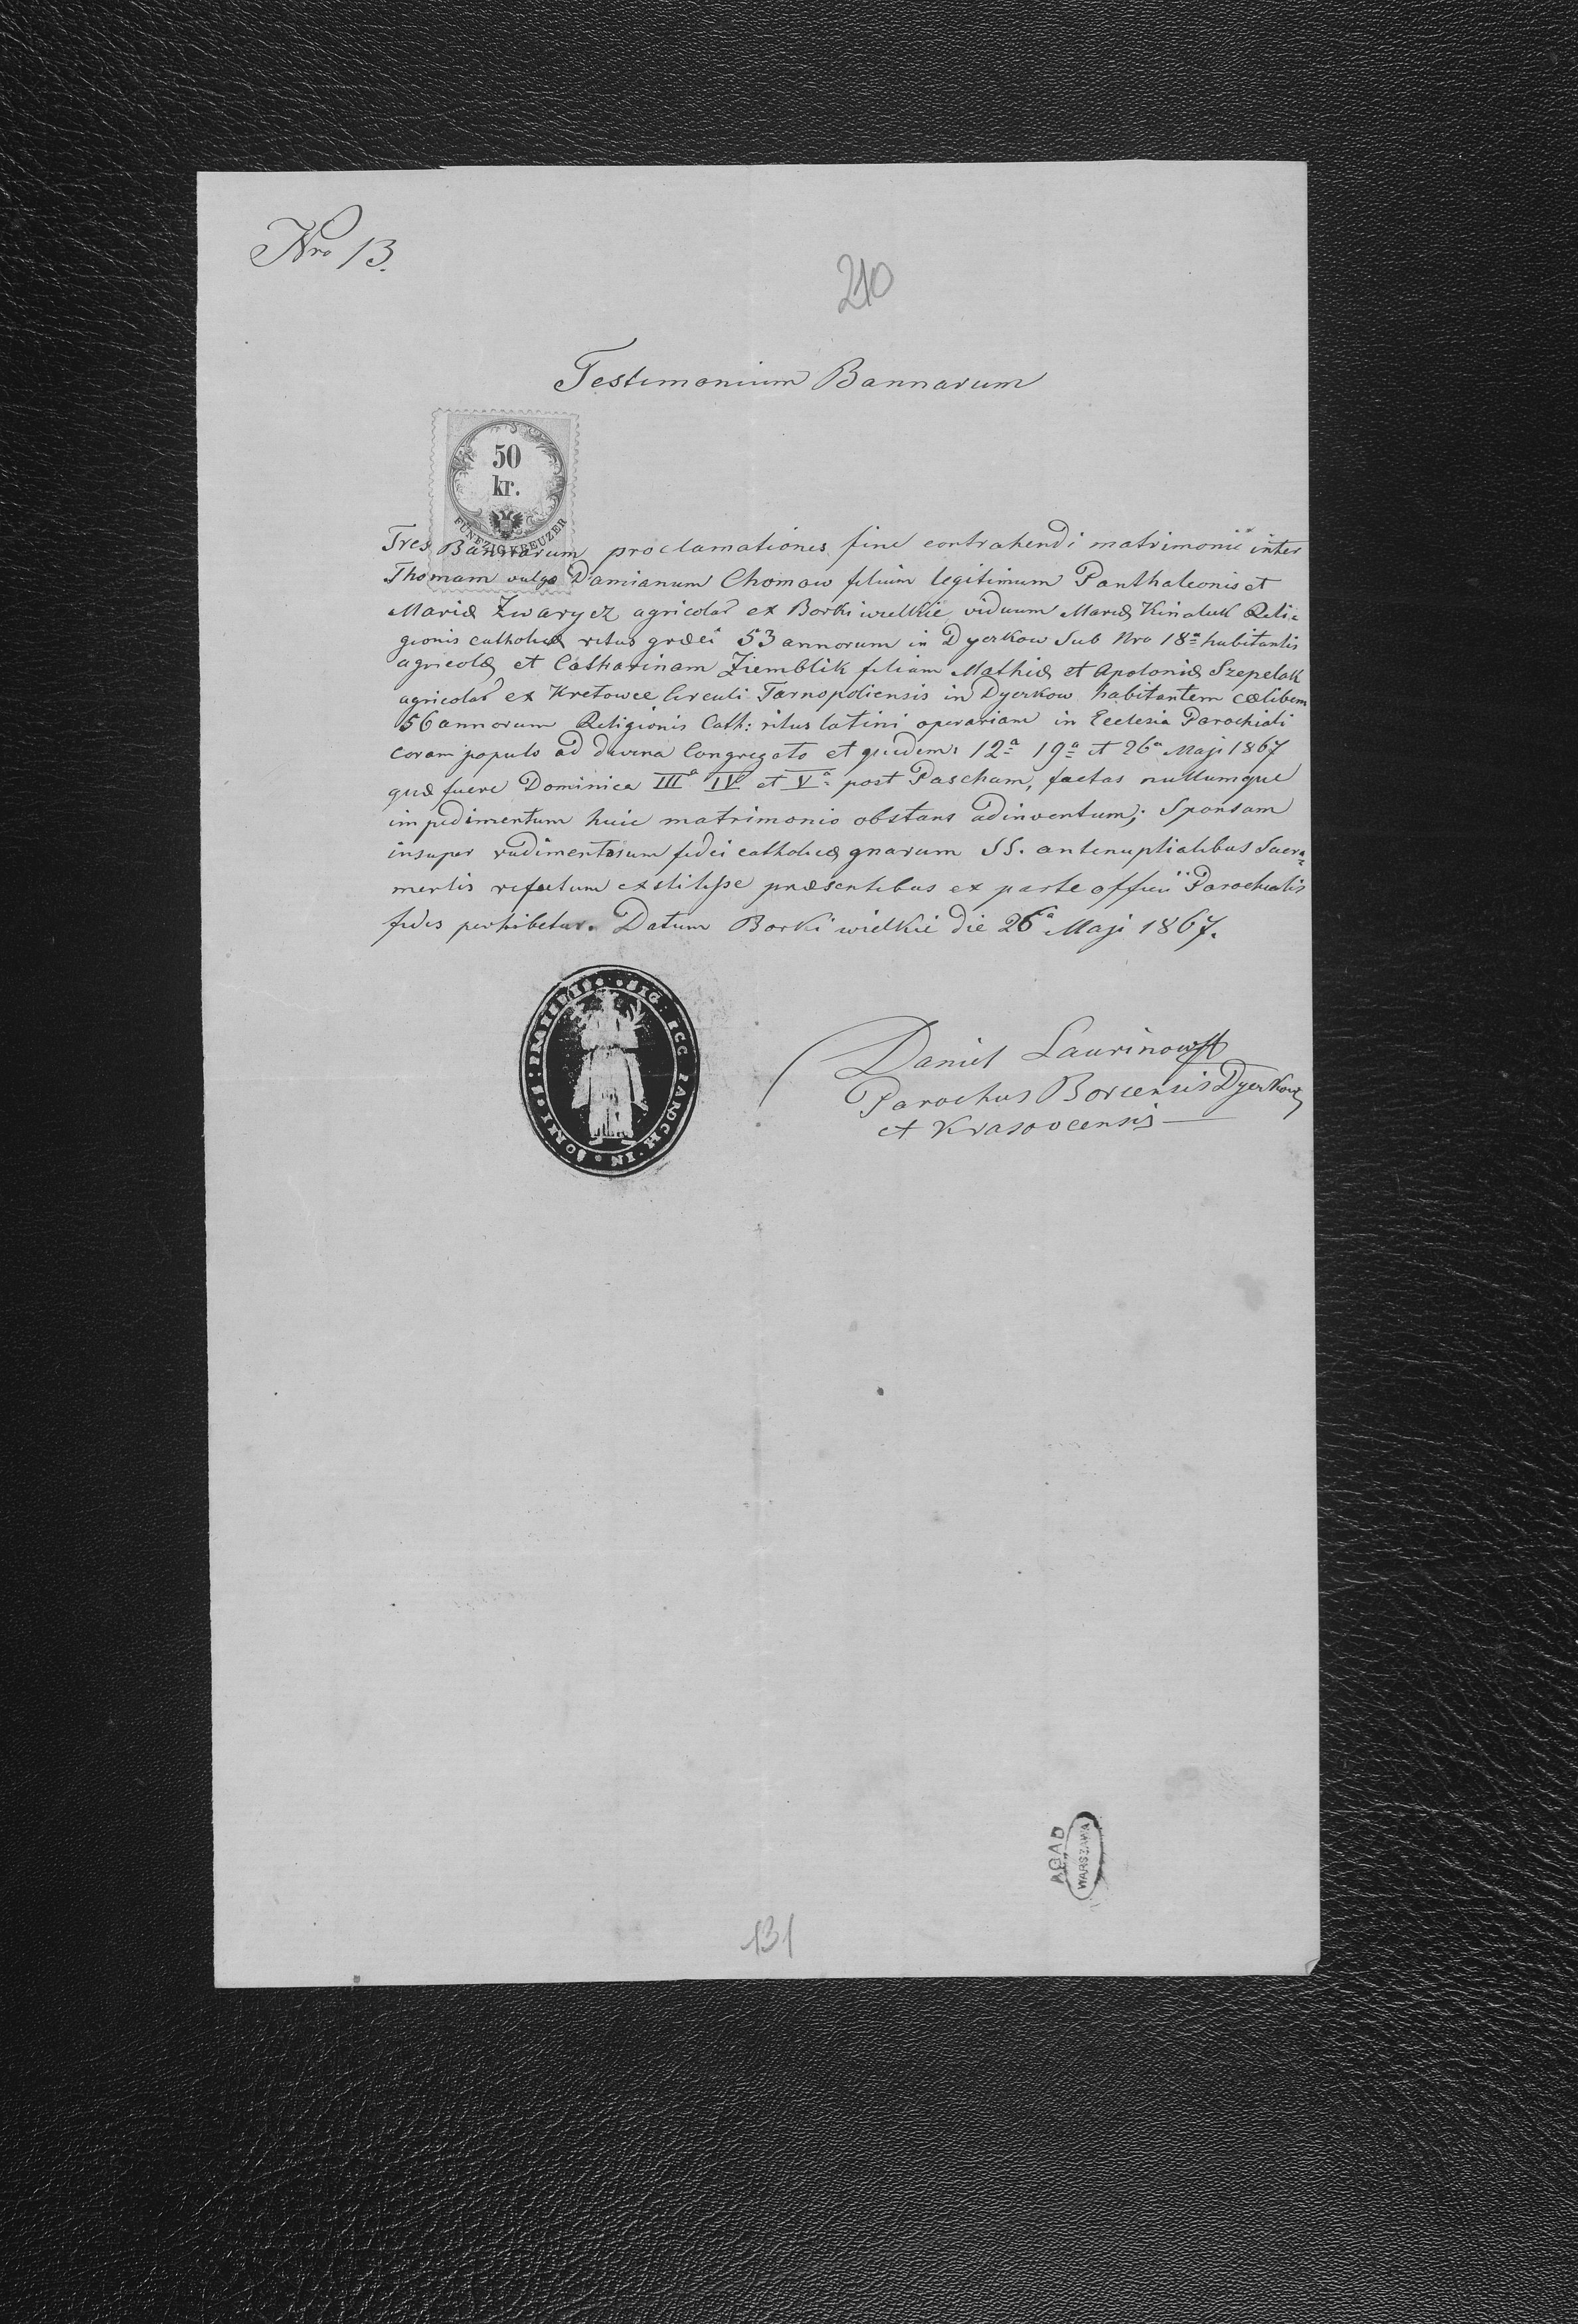 Nro 13.
210
Testimonium Bannarum
50
kr.
FÜNFZIG KREUZER
Tres Bannarum proclamationes fine contrahendi matrimonii inter
Thomam vulgo Damianum Chomow filium legitimum Panthaleonis et
Mariæ Zwarycz agricolar ex Borki wielkie viduum Mariæ Kinaluk Reli-
gionis catholicæ ritus græci 53 annorum in Dyczkow Sub Nro 18a habitantis
agricolæ, et Catharinam Ziemblik filiam Mathiæ et Apoloniæ Szepelak
agricolar ex Kretowce Circuli Tarnopoliensis in Dyczkow habitantem cælibem
56 annorum Religionis Cath: ritus latini operariam in Ecclesia Parochiali
coram populo ad divina Congregato et quidem: 12a 19a et 26a Maji 1867
quæ fuere Dominica IIIa IV et Va post Pascham, factas nullumque
impedimentum huic matrimonio obstans adinventum; Sponsam
insuper rudimentorum fidei catholicæ gnarum SS. antenuptialibus Sacra=
mentis refectum exstitisse præsentibus ex parte officii Parochialis
fides perhibetur. Datum Borki wielkie die 26a Maji 1867.
SIG: ECC PAROCH: IN
Daniel Laurinowski
Parochus Borcensis Dyczkow
et Krasovcensis
AGAD
WARSZAWA
131